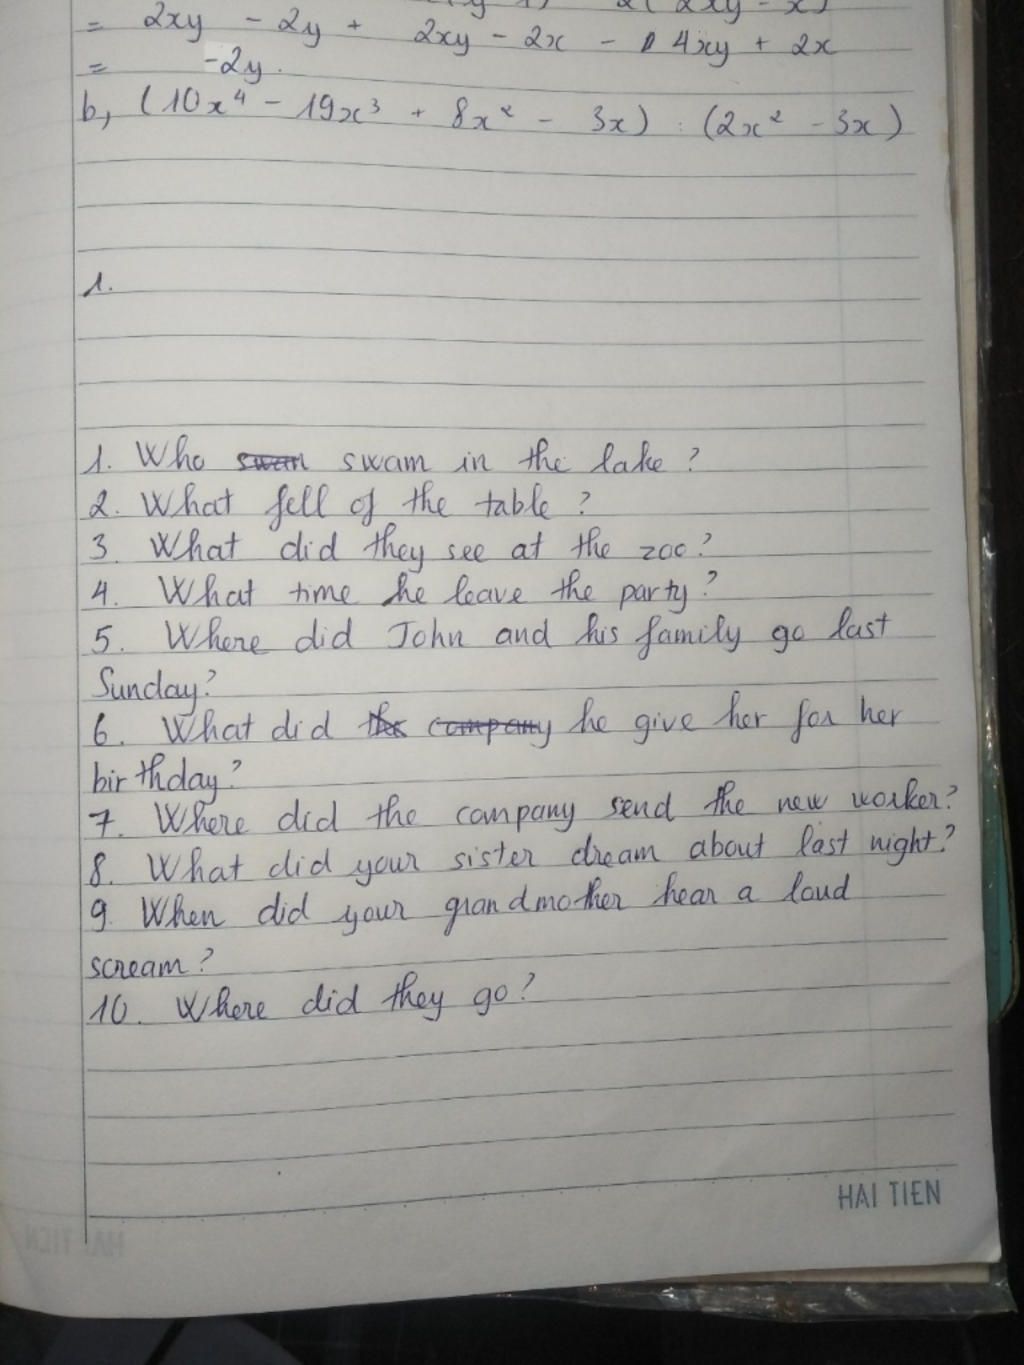 2(2xy - x)
= 2xy - 2y + 2xy - 2x - 4xy + 2x
= -2y.
b, (10x⁴ - 19x³ + 8x² - 3x) : (2x² - 3x)
1.
1. Who swam swam in the lake ?
2. What fell of the table ?
3. What did they see at the zoo?
4. What time he leave the party?
5. Where did John and his family go last
Sunday?
6. What did the company he give her for her
birthday?
7. Where did the company send the new worker?
8. What did your sister dream about last night?
9. When did your grandmother hear a loud
scream?
10. Where did they go?
HAI TIEN